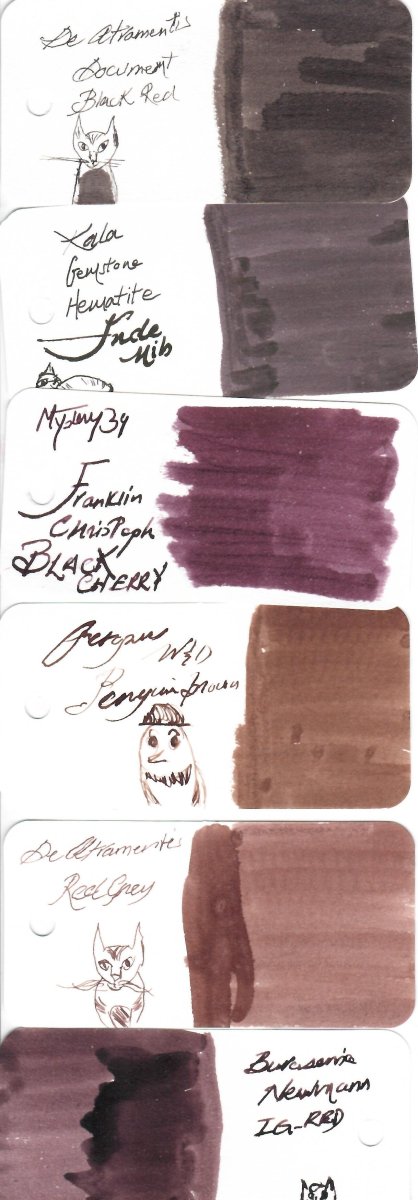 De Atramentis
Document
Black Red
Kala
Gemstone
Hematite
Jude
Nib
Mystery 34
Franklin
Christoph
BLACK
CHERRY
Penguin brown
De Atramentis
Red Grey
Newmann
IG-RED